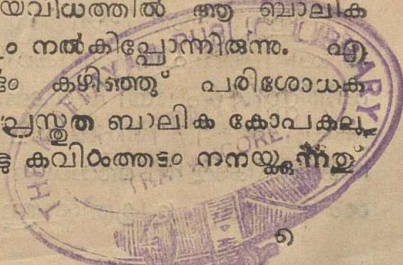 യവിധത്തിൽ ആ ബാലിക
ം നൽകിപ്പോന്നിരുന്നു. ഏ
ം കഴിഞ്ഞ് പരിശോധക
പ്രസ്തുത ബാലിക കോപകലു
ടു കവിൾത്തടം നനയ്ക്കുന്നതു്
THE PUBLIC LIBRARY
TRAVANCORE